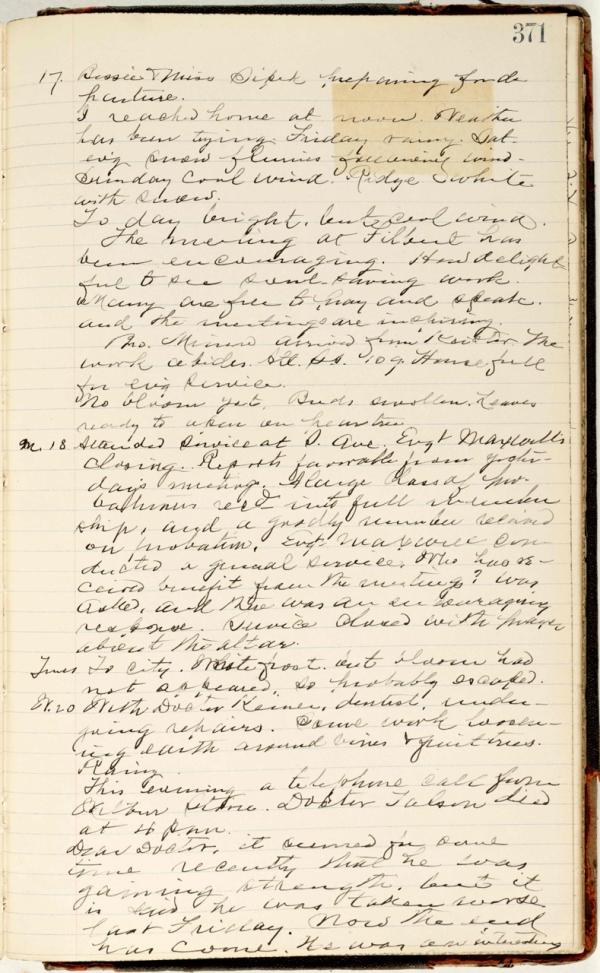 371
17. Bessie & Miss preparing for de
parture.
I reached home at noon. Weather
has been trying. Friday rainy. Sat.
ev'g snow flurries following wind.
Sunday cool wind. Ridge white
with snow.
To day bright, but cool wind.
The meeting at Filbert has
been encouraging. How delight-
ful to see soul saving work.
Many are free to pray and speak.
and the meetings are inspiring.
Bro. arrived from The
work abides. Att. S.S. 109. House full
for ev'g service.
No bloom yet. Buds swollen. Leaves
ready to open on peartree.
M. 18. Attended service at D. Ave. Evgt Maxwell's
closing. Reports favorable from yester-
day's meeting. A large class of pro-
bationers rec'd into full member
ship, and a goodly number received
on probation. Evgt. Maxwell con-
ducted a general service. Who has re-
ceived benefit from the meetings? was
asked, and there was an encouraging
response. Service closed with prayer
about the altar.
Tues To city. White frost. but bloom had
not appeared, so probably escaped.
W. 20 With Doctor dentist, under-
going repairs. Some work loosen-
ing earth around vines & fruit trees.
Rainy.
This evening a telephone call from
Wilbur Doctor died
at 4 p.m.
Dear Doctor, it seemed for some
time recently that he was
gaining strength, but it
is said he was taken worse
last Friday. Now the end
has come. He was an interesting